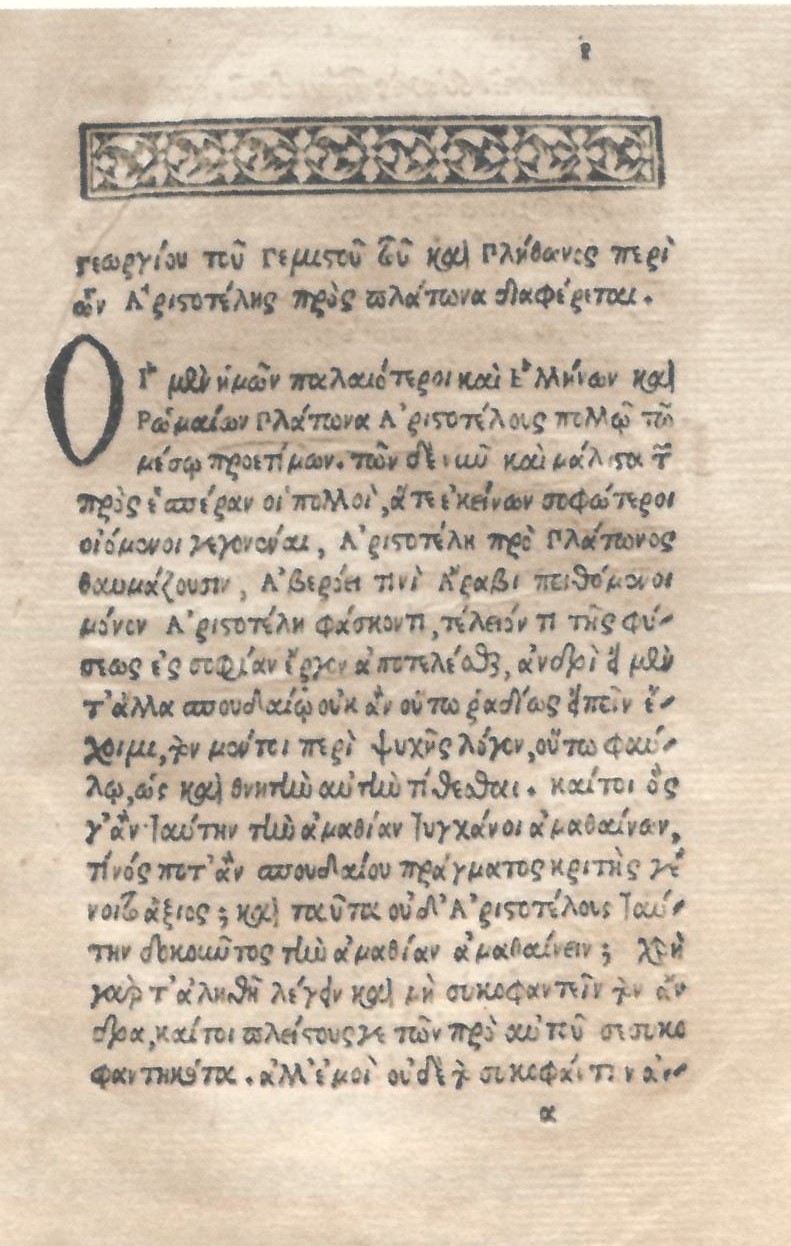 Γεωργίου τοῦ Γεμιστοῦ τοῦ καὶ Πλήθωνος περὶ
ὧν Ἀριστοτέλης πρὸς Πλάτωνα διαφέρεται.
Οἱ μὲν ἡμῶν παλαιότεροι καὶ Ἑλλήνων καὶ
Ῥωμαίων Πλάτωνα Ἀριστοτέλους πολλῷ τῷ
μέσῳ προετίμων. τῶν δὲ νῦν καὶ μάλιστα τῶν
πρὸς ἑσπέραν οἱ πολλοὶ, ἅτε ἐκείνων σοφώτεροι
οἰόμενοι γεγονέναι, Ἀριστοτέλη πρὸ Πλάτωνος
θαυμάζουσιν, Ἀβερόει τινὶ Ἄραβι πειθόμενοι
μόνον Ἀριστοτέλη φάσκοντι, τέλειόν τι τῆς φύ-
σεως ἐς σοφίαν ἔργον ἀποτελέσθαι, ἀνδρὶ εἰ μὲν
τ' ἄλλα σπουδαίῳ οὐκ ἂν οὕτω ῥᾳδίως εἰπεῖν ἔ-
χοιμι, τὸν μέντοι περὶ ψυχῆς λόγον, οὕτω φαύ-
λῳ, ὡς καὶ θνητὴν αὐτὴν τίθεσθαι. καίτοι ὃς
γ' ἂν ταύτην τὴν ἀμαθίαν τυγχάνοι ἀμαθαίνων,
τίνός ποτ' ἂν σπουδαίου πράγματος κριτὴς γέ
νοιτο ἄξιος; καὶ ταῦτα οὐδ' Ἀριστοτέλους ταύ-
την δοκοῦντος τὴν ἀμαθίαν ἀμαθαίνειν; χρὴ
γὰρ τ' ἀληθῆ λέγειν καὶ μὴ συκοφαντεῖν τὸν ἄν
δρα, καίτοι πλείστους γε τῶν πρὸ αὐτοῦ σεσυκο
φαντηκότα. ἀλλ' ἐμοὶ οὐδὲ τὸν συκοφάντην ἀν-
α